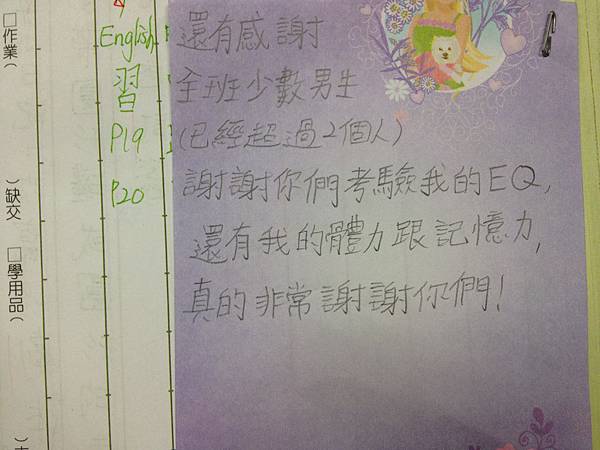 □作業（
）缺交 □學用品（
）
English
習
P19
P20
還有感謝
全班少數男生
(已經超過2個人)
謝謝你們考驗我的EQ,
還有我的體力跟記憶力,
真的非常謝謝你們!